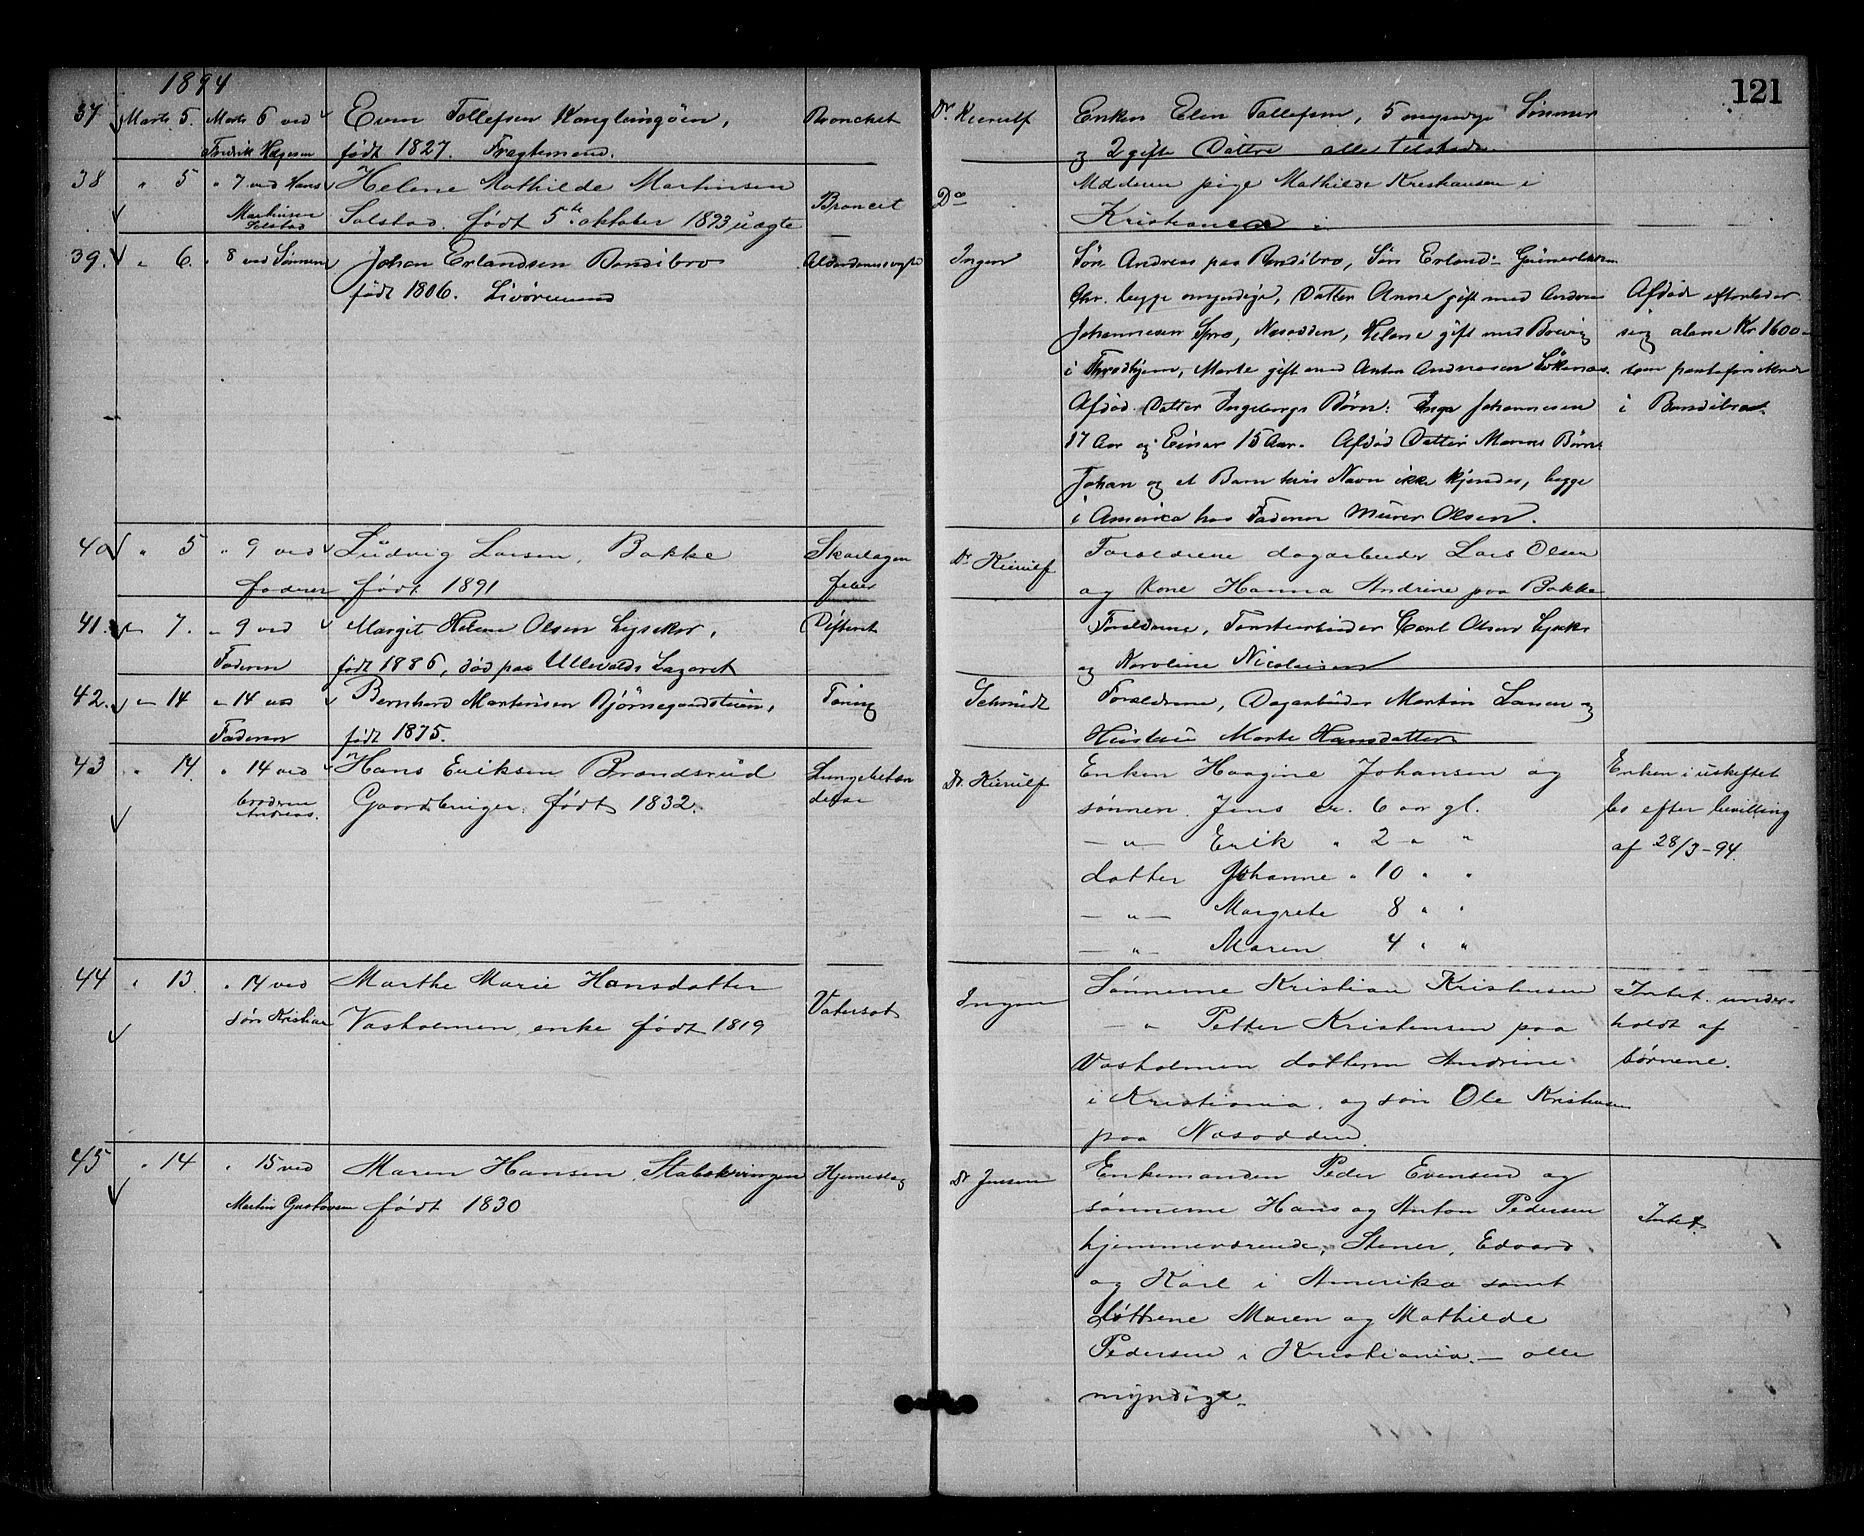 1894
121
37 Marts 5. Marts 6 ved Even Tollefsen Konglungöen, Bronchit Dr. Kierulf Enken Elen Tollefsen, 5 myndige Sønner
Fredrik født 1827. Fragtemand. og 2 gifte Døttre alle tilstede
38 " 5 " 7 ved Hans Helene Mathilde Martinsen Broncit Do Moderen pige Mathilde Kristiansen i
Martinsen Solstad Solstad. født 5te oktober 1893 uægte Kristiania
39. " 6. " 8 ved Sønnen Johan Erlandsen Bondibro Alderdomssvaghed Ingen Søn Andreas paa Bondibro, Søn Erland
født 1806. begge myndige, Datter Anne gift med Andreas Afdøde efterlader
Johannesen Spro, Nesodden, Helene gift med i sig alene Kr. 1600
i Throdhjem, Marte gift med Anton Andreasen som
Afdød Datter Ingeborgs Børn: Inga Johannesen i Bondibro.
17 Aar og Einar 15 Aar. Afdød Datter Marens Børn:
Johan og et Barn hvis Navn ikke kjendes, begge
i America hos Faderen Murer Olsen.
40 " 5 " 9 ved Ludvig Larsen, Bakke Skarlagen Dr Kierulf Forældrene dagarbeider Lars Olsen
faderen født 1891 feber og Kone Hanna Andrine paa Bakke
41. " 7. " 9 ved Margit Helene Olsen Lysaker, Difterit Forældrene, Tomtearbeider Carl Olsen Lysaker
Faderen født 1886, død paa Ullevolds Lazaret og Karoline Nicolaisen
42. " 14 " 14 ved Bernhard Martinsen Bjørnegaardsteien, Tæring Schmidt Forældrene, Dagarbeider Martin Larsen og
Faderen født 1875. Hustru Marte Hansdatter
43 " 14. " 14 ved Hans Eriksen Brandsrud Lungebetæn Dr. Kierulf Enken Haagine Johansen og Enken i uskiftet
broderen Andreas. Gaardbruger. født 1832. delse sønnen Jens er 6 aar gl. bo efter bevilling
— " — Erik " 2 " " af 28/3-94.
datter Johanne " 10 " "
— " — Margrete 8 " "
— " — Maren 4 " "
44 " 13. " 14 ved Marthe Marie Hansdatter Vatersot Ingen Sønnerne Kristian Kristensen Intet. under-
søn Kristian Vasholmen, enke født 1819 — " Petter Kristensen paa holdt af
Vasholmen datteren Andrine børnene.
i Kristiania, og søn Ole Kristensen
paa Næsodden.
45 " 14 " 15 ved Maren Hansen, Stabekringen Hjerneslag Dr Jensen Enkemanden Peder Evensen og
Martin Gustavsen født 1830 sønnerne Hans og Anton Pedersen Intet.
hjemmeværende, Stener, Edvard
og Karl i Amerika samt
døttrene Maren og Mathilde
Pedersen i Kristiania. — alle
myndige.